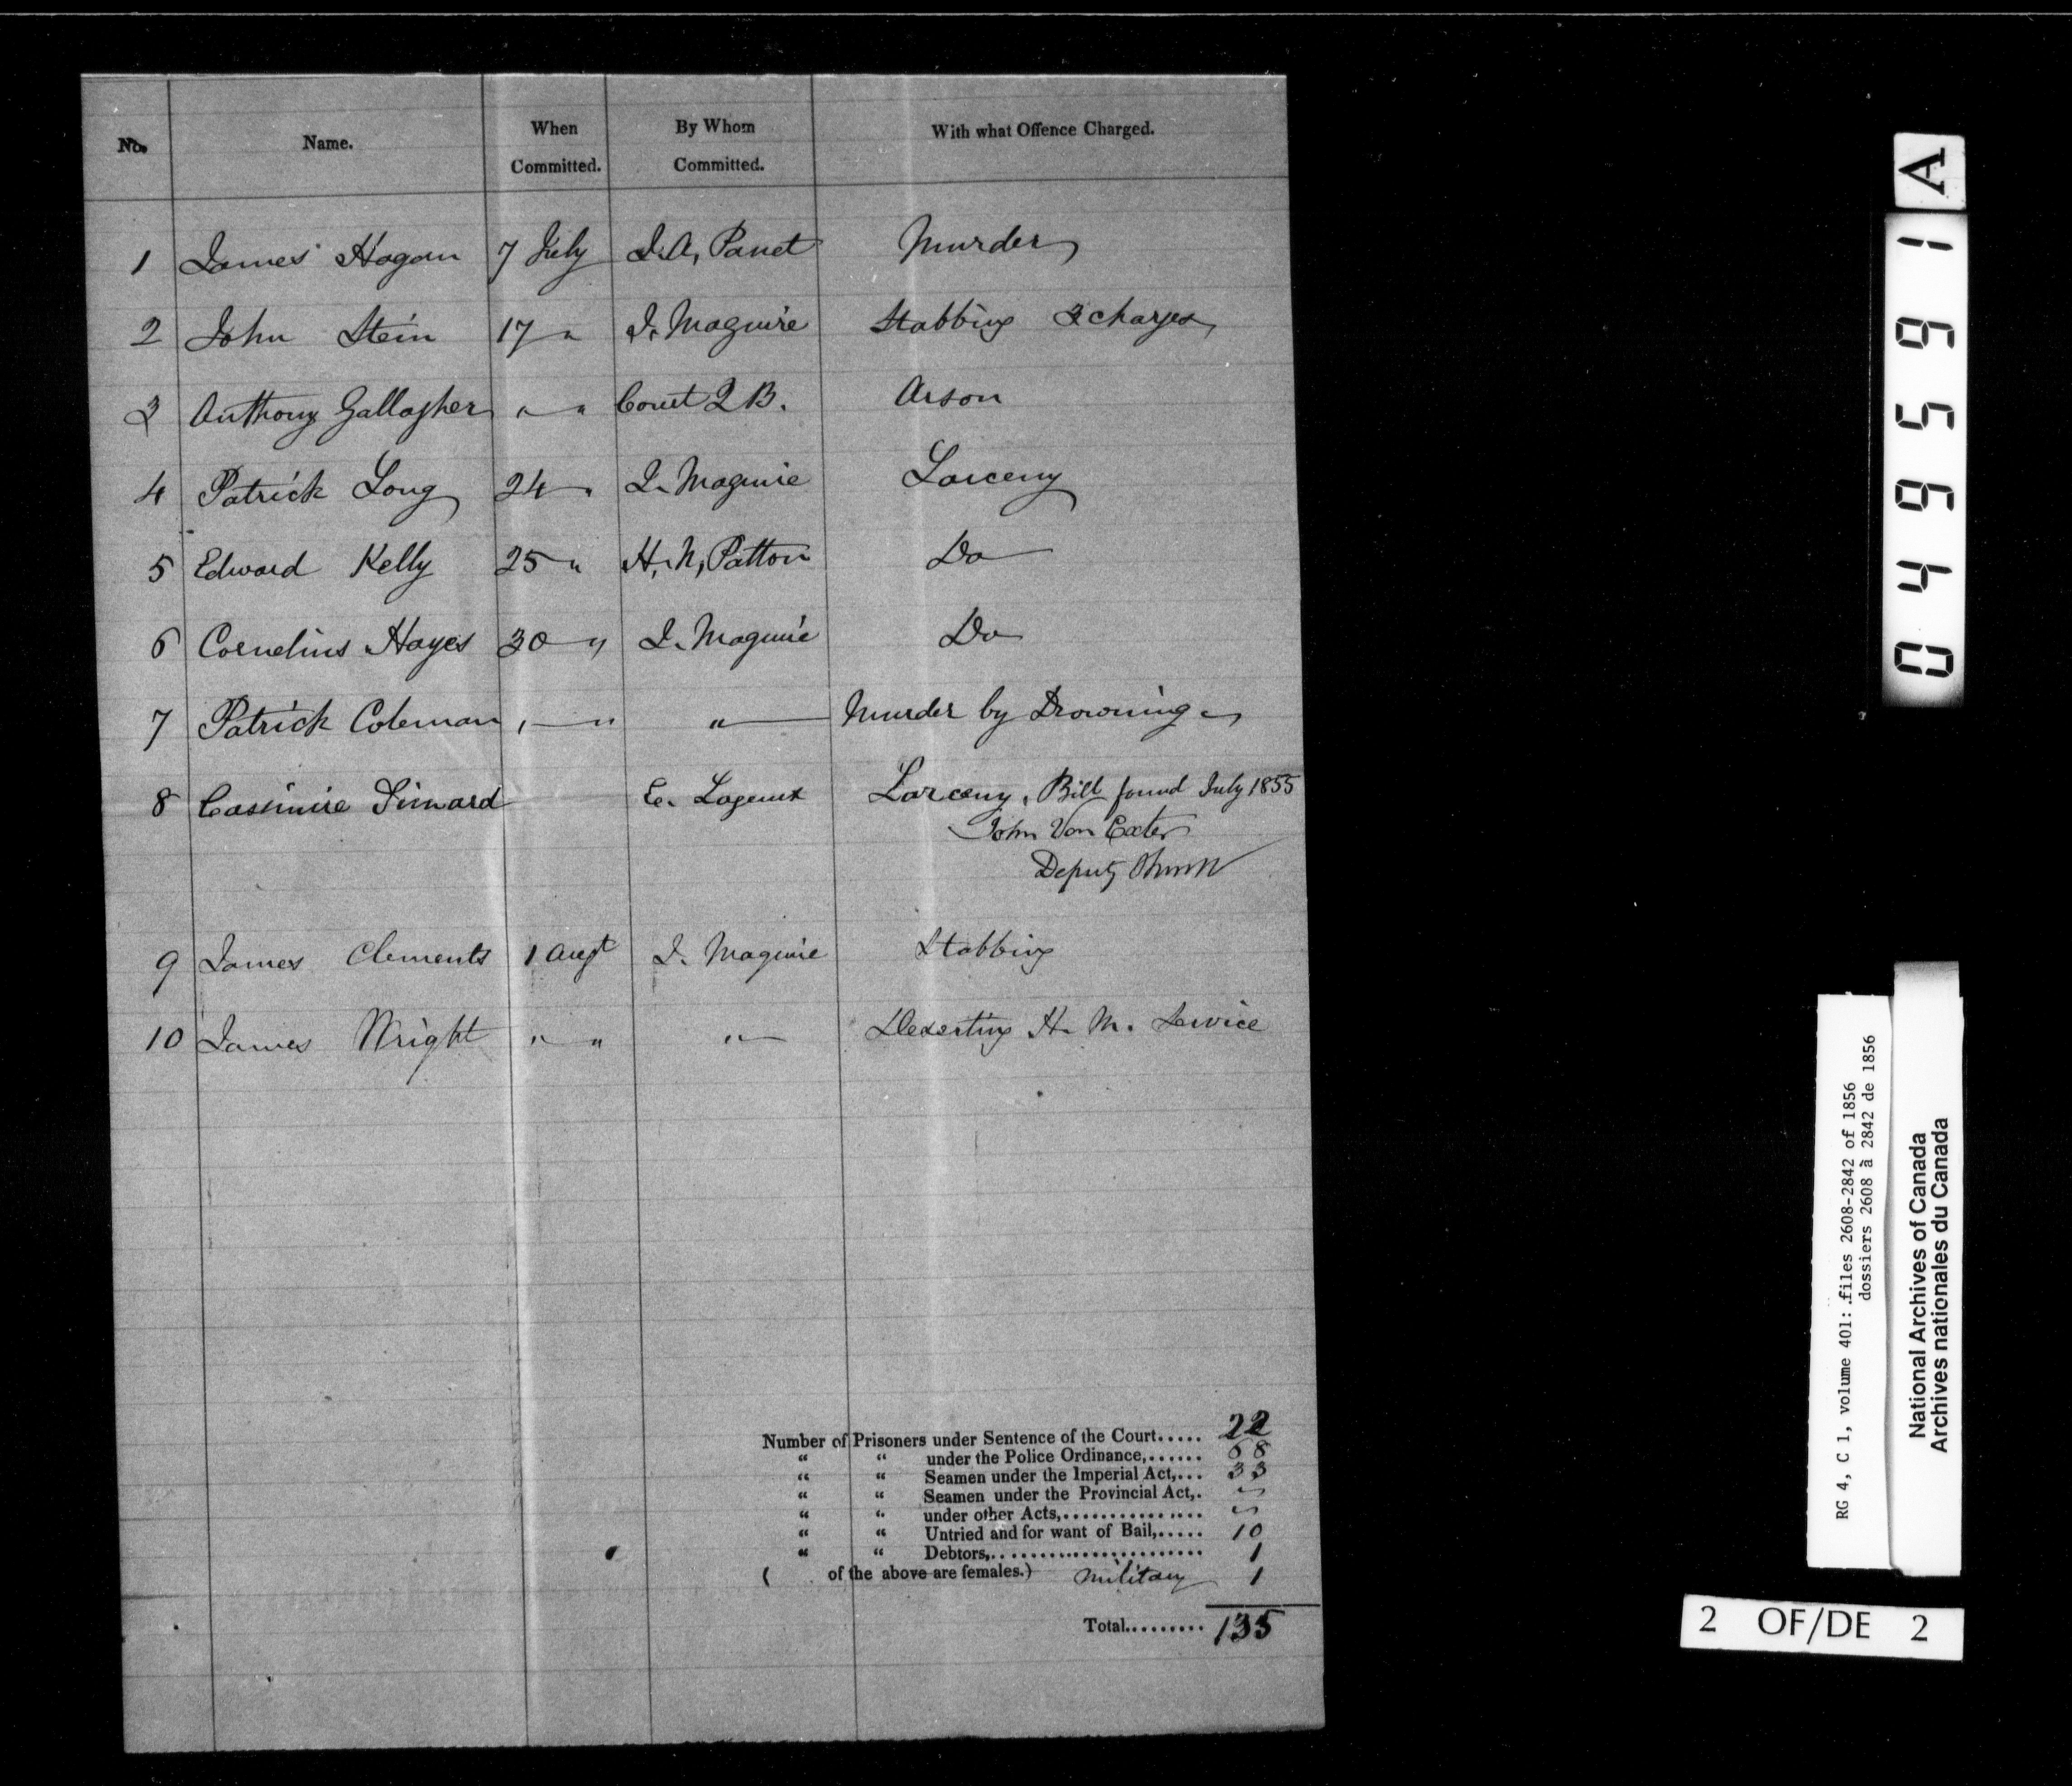 No. Name. When Committed. By Whom Committed. With what Offence Charged.
1 James Hogan 7 July J. A, Panet Murder
2 John Stein 17 " J. Maguire Stabbing 3 charges
3 Anthony Gallagher " " Court Q B. Arson
4 Patrick Long 24 " J. Maguire Larceny
5 Edward Kelly 25 " H. N, Patton Do
6 Cornelius Hayes 30 " J. Maguire Do
7 Patrick Coleman " " " Murder by Drowning
8 Casimire Simard E. Lagueux Larceny, Bill found July 1855
John Von Exter
Deputy Sheriff
9 James Clements 1 Augt J. Maguire Stabbing
10 James Wright " " " Deserting H. M. Service
Number of Prisoners under Sentence of the Court..... 22
" " under the Police Ordinance,...... 68
" " Seamen under the Imperial Act,... 33
" " Seamen under the Provincial Act,. "
" " under other Acts,............... "
" " Untried and for want of Bail,..... 10
" " Debtors,........................ 1
( of the above are females.) Military 1
Total.......... 135
A
1
6
5
6
4
0
RG 4, C 1, volume 401: files 2608-2842 of 1856
dossiers 2608 à 2842 de 1856
National Archives of Canada
Archives nationales du Canada
2 OF/DE 2